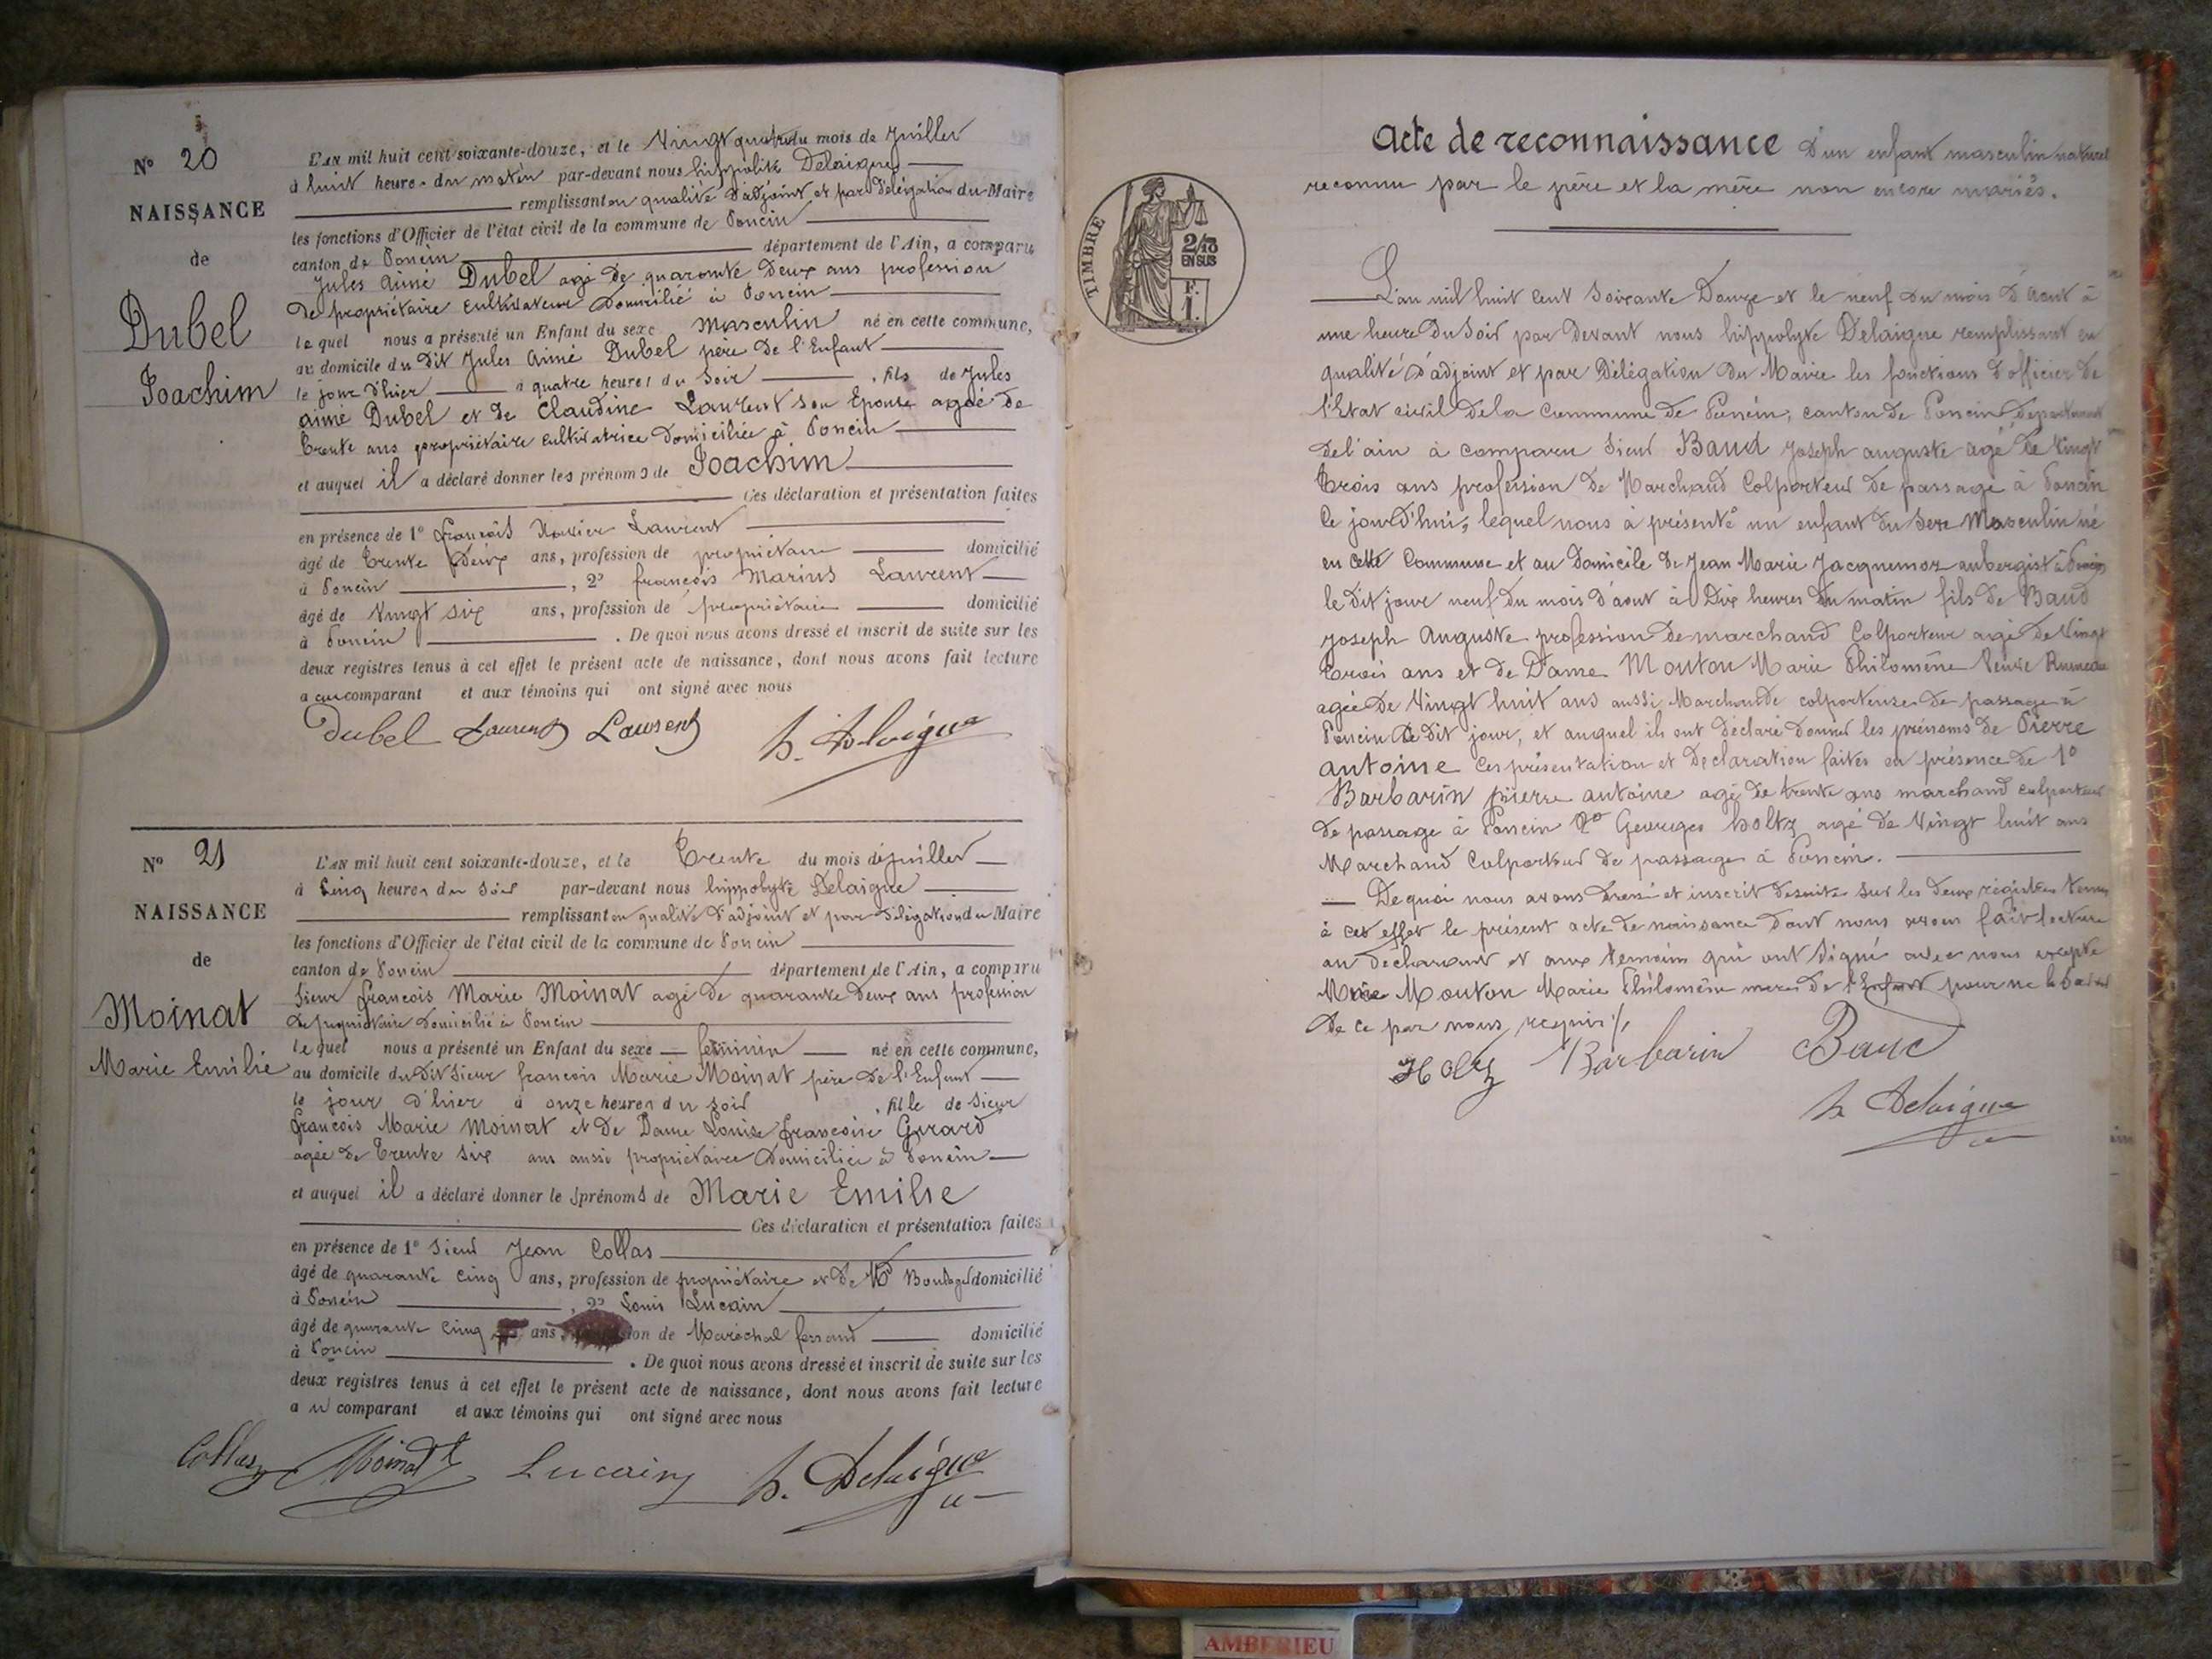 N° 20
NAISSANCE
de
Dubel
Joachim
L'AN mil huit cent soixante-douze, et le Vingt quatre du mois de Juillet
à huit heures du matin par-devant nous hippolite Delaigue
remplissant en qualité d'adjoint et par délégation du Maire
les fonctions d'Officier de l'état civil de la commune de Poncin
canton de Poncin département de l'Ain, a comparu
Jules aimé Dubel agé de quarante deux ans profession
de propriétaire cultivateur domicilié à Poncin
lequel nous a présenté un Enfant du sexe masculin né en cette commune,
au domicile du dit Jules aimé Dubel père de l'Enfant
le jour d'hier à quatre heures du soir , fils de Jules
aimé Dubel et de Claudine Laurent son Epouse agée de
trente ans propriétaire cultivatrice domiciliée à Poncin
et auquel il a déclaré donner les prénoms de Joachim
Ces déclaration et présentation faites
en présence de 1° françois Xavier Laurent
âgé de trente deux ans, profession de propriétaire domicilié
à Poncin , 2° françois Marius Laurent
âgé de Vingt six ans, profession de propriétaire domicilié
à Poncin . De quoi nous avons dressé et inscrit de suite sur les
deux registres tenus à cet effet le présent acte de naissance, dont nous avons fait lecture
a au comparant et aux témoins qui ont signé avec nous
Dubel Laurent Laurent h. Delaigue
N° 21
NAISSANCE
de
Moinat
Marie Emilie
L'AN mil huit cent soixante-douze, et le trente du mois de juillet
à cinq heures du soir par-devant nous hippolyte Delaigue
remplissant en qualité d'adjoint et par délégation du Maire
les fonctions d'Officier de l'état civil de la commune de Poncin
canton de Poncin département de l'Ain, a comparu
Sieur françois Marie Moinat agé de quarante deux ans profession
de propriétaire domicilié à Poncin
lequel nous a présenté un Enfant du sexe féminin né en cette commune,
au domicile du dit Sieur françois Marie Moinat père de l'Enfant
le jour d'hier à onze heures du soir , fille de Sieur
françois Marie Moinat et de Dame Louise françoise Girard
agée de trente six ans aussi propriétaire domiciliée à Poncin
et auquel il a déclaré donner les prénoms de Marie Emilie
Ces déclaration et présentation faites
en présence de 1° Sieur Jean Collas
âgé de quarante cinq ans, profession de propriétaire et de domicilié
à Poncin , 2° Louis Lucain
âgé de quarante cinq ans, profession de Maréchal ferrant domicilié
à Poncin . De quoi nous avons dressé et inscrit de suite sur les
deux registres tenus à cet effet le présent acte de naissance, dont nous avons fait lecture
a u comparant et aux témoins qui ont signé avec nous
Collas Moinat Lucain h. Delaigue
Acte de reconnaissance d'un enfant masculin naturel
reconnu par le père et la mère non encore mariés.
TIMBRE
2/10
EN SUS
F.
1.
L'an mil huit cent soixante Douze et le neuf du mois d'aout à
une heure du soir par devant nous hippolyte Delaigue remplissant en
qualité d'adjoint et par délégation du Maire les fonctions d'officier de
l'Etat civil de la Commune de Poncin, canton de Poncin département
de l'ain à comparu Sieur Baud Joseph auguste agé de Vingt
trois ans profession de Marchand Colporteur de passage à Poncin
ce jourd'hui, lequel nous à présenté un enfant du sexe Masculin né
en cette Commune et au Domicile de Jean Marie Jacquemoz aubergist à Poncin
le dit jour neuf du mois d'aout à Dix heures du matin fils de Baud
Joseph Auguste profession de marchand Colporteur agé de Vingt
trois ans et de Dame Mouton Marie Philomène Veuve
agée de Vingt huit ans aussi Marchande colporteuse de passage à
Poncin le dit jour, et auquel ils ont déclaré donner les prénoms de Pierre
antoine Ces présentation et Declaration faites en présence de 1°
Barbarin pierre antoine agé de trente ans marchand colporteur
de passage à Poncin 2° Georges holtz agé de Vingt huit ans
Marchand Colporteur de passage à Poncin.
De quoi nous avons dressé et inscrit desuite sur les deux régistres tenus
à cet effet le présent acte de naissance dont nous avons fait lecture
au declarant et aux temoins qui ont signé avec nous excepté
Mouton Marie Philomène mère de l'Enfant pour ne le savoir
de ce par nous requis /.
Holtz Barbarin Baud
h Delaigue
AMBERIEU